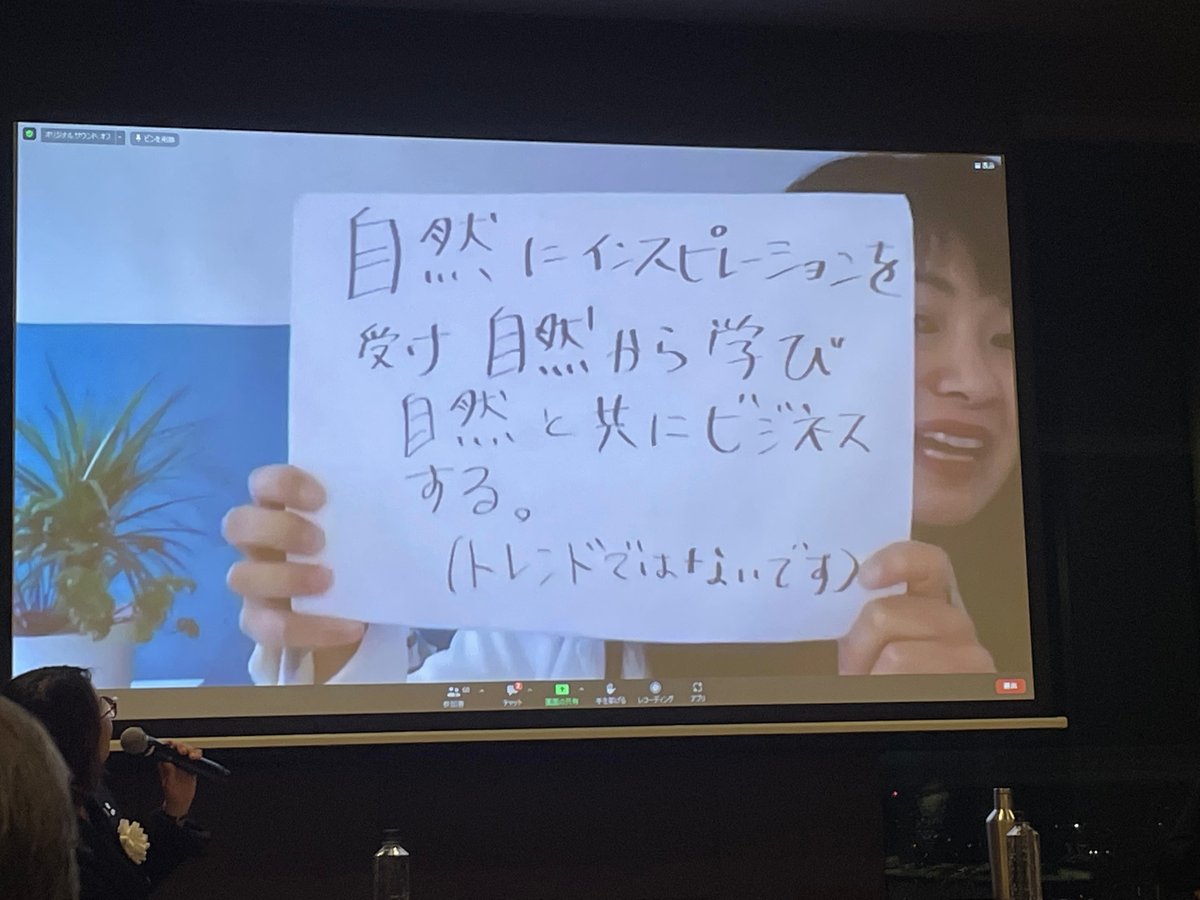 オリジナル サウンド: オフ
ピンを削除
表示
自然にインスピレーションを
受け 自然から学び
自然と共にビジネス
する。
(トレンドではないです)
参加者
チャット
画面の共有
手を挙げる
レコーディング
アプリ
退出